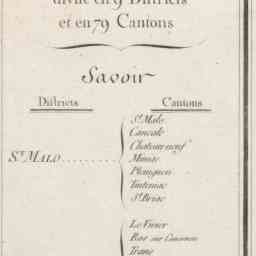 divisé en 9 Districts
et en 79 Cantons
Savoir
Districts Cantons
St. Malo
Cancale
Chateauneuf
St. MALO........ Miniac
Plerguen
Tinteniac
St. Briac
Le Vivier
Baz sur Couesnon
Trans